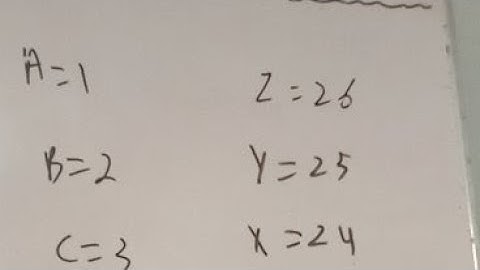 A=1
Z=26
B=2
Y=25
C=3
X=24